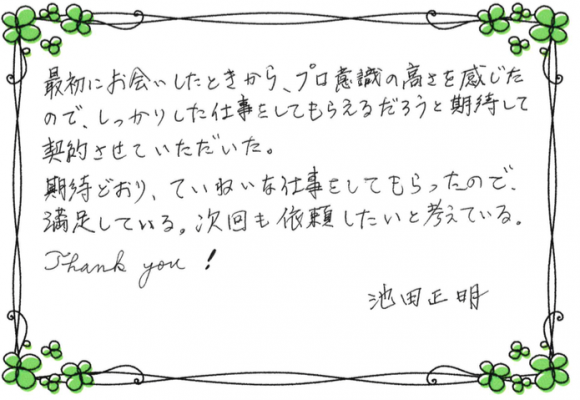 最初にお会いしたときから、プロ意識の高さを感じた
ので、しっかりした仕事をしてもらえるだろうと期待して
契約させていただいた。
期待どおり、ていねいな仕事をしてもらったので、
満足している。次回も依頼したいと考えている。
Thank you !
池田正明